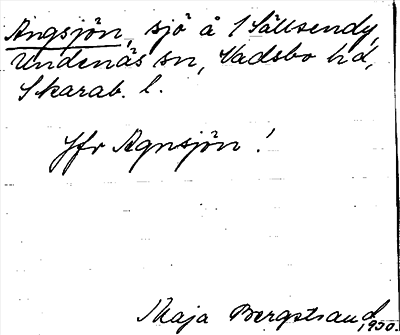 Angsjön, sjö å 1 Sällsendy,
Undenäs sn, Vadsbo hd,
Skarab. l.
Jfr Agnsjön!
Maja Bergstrand 1930.